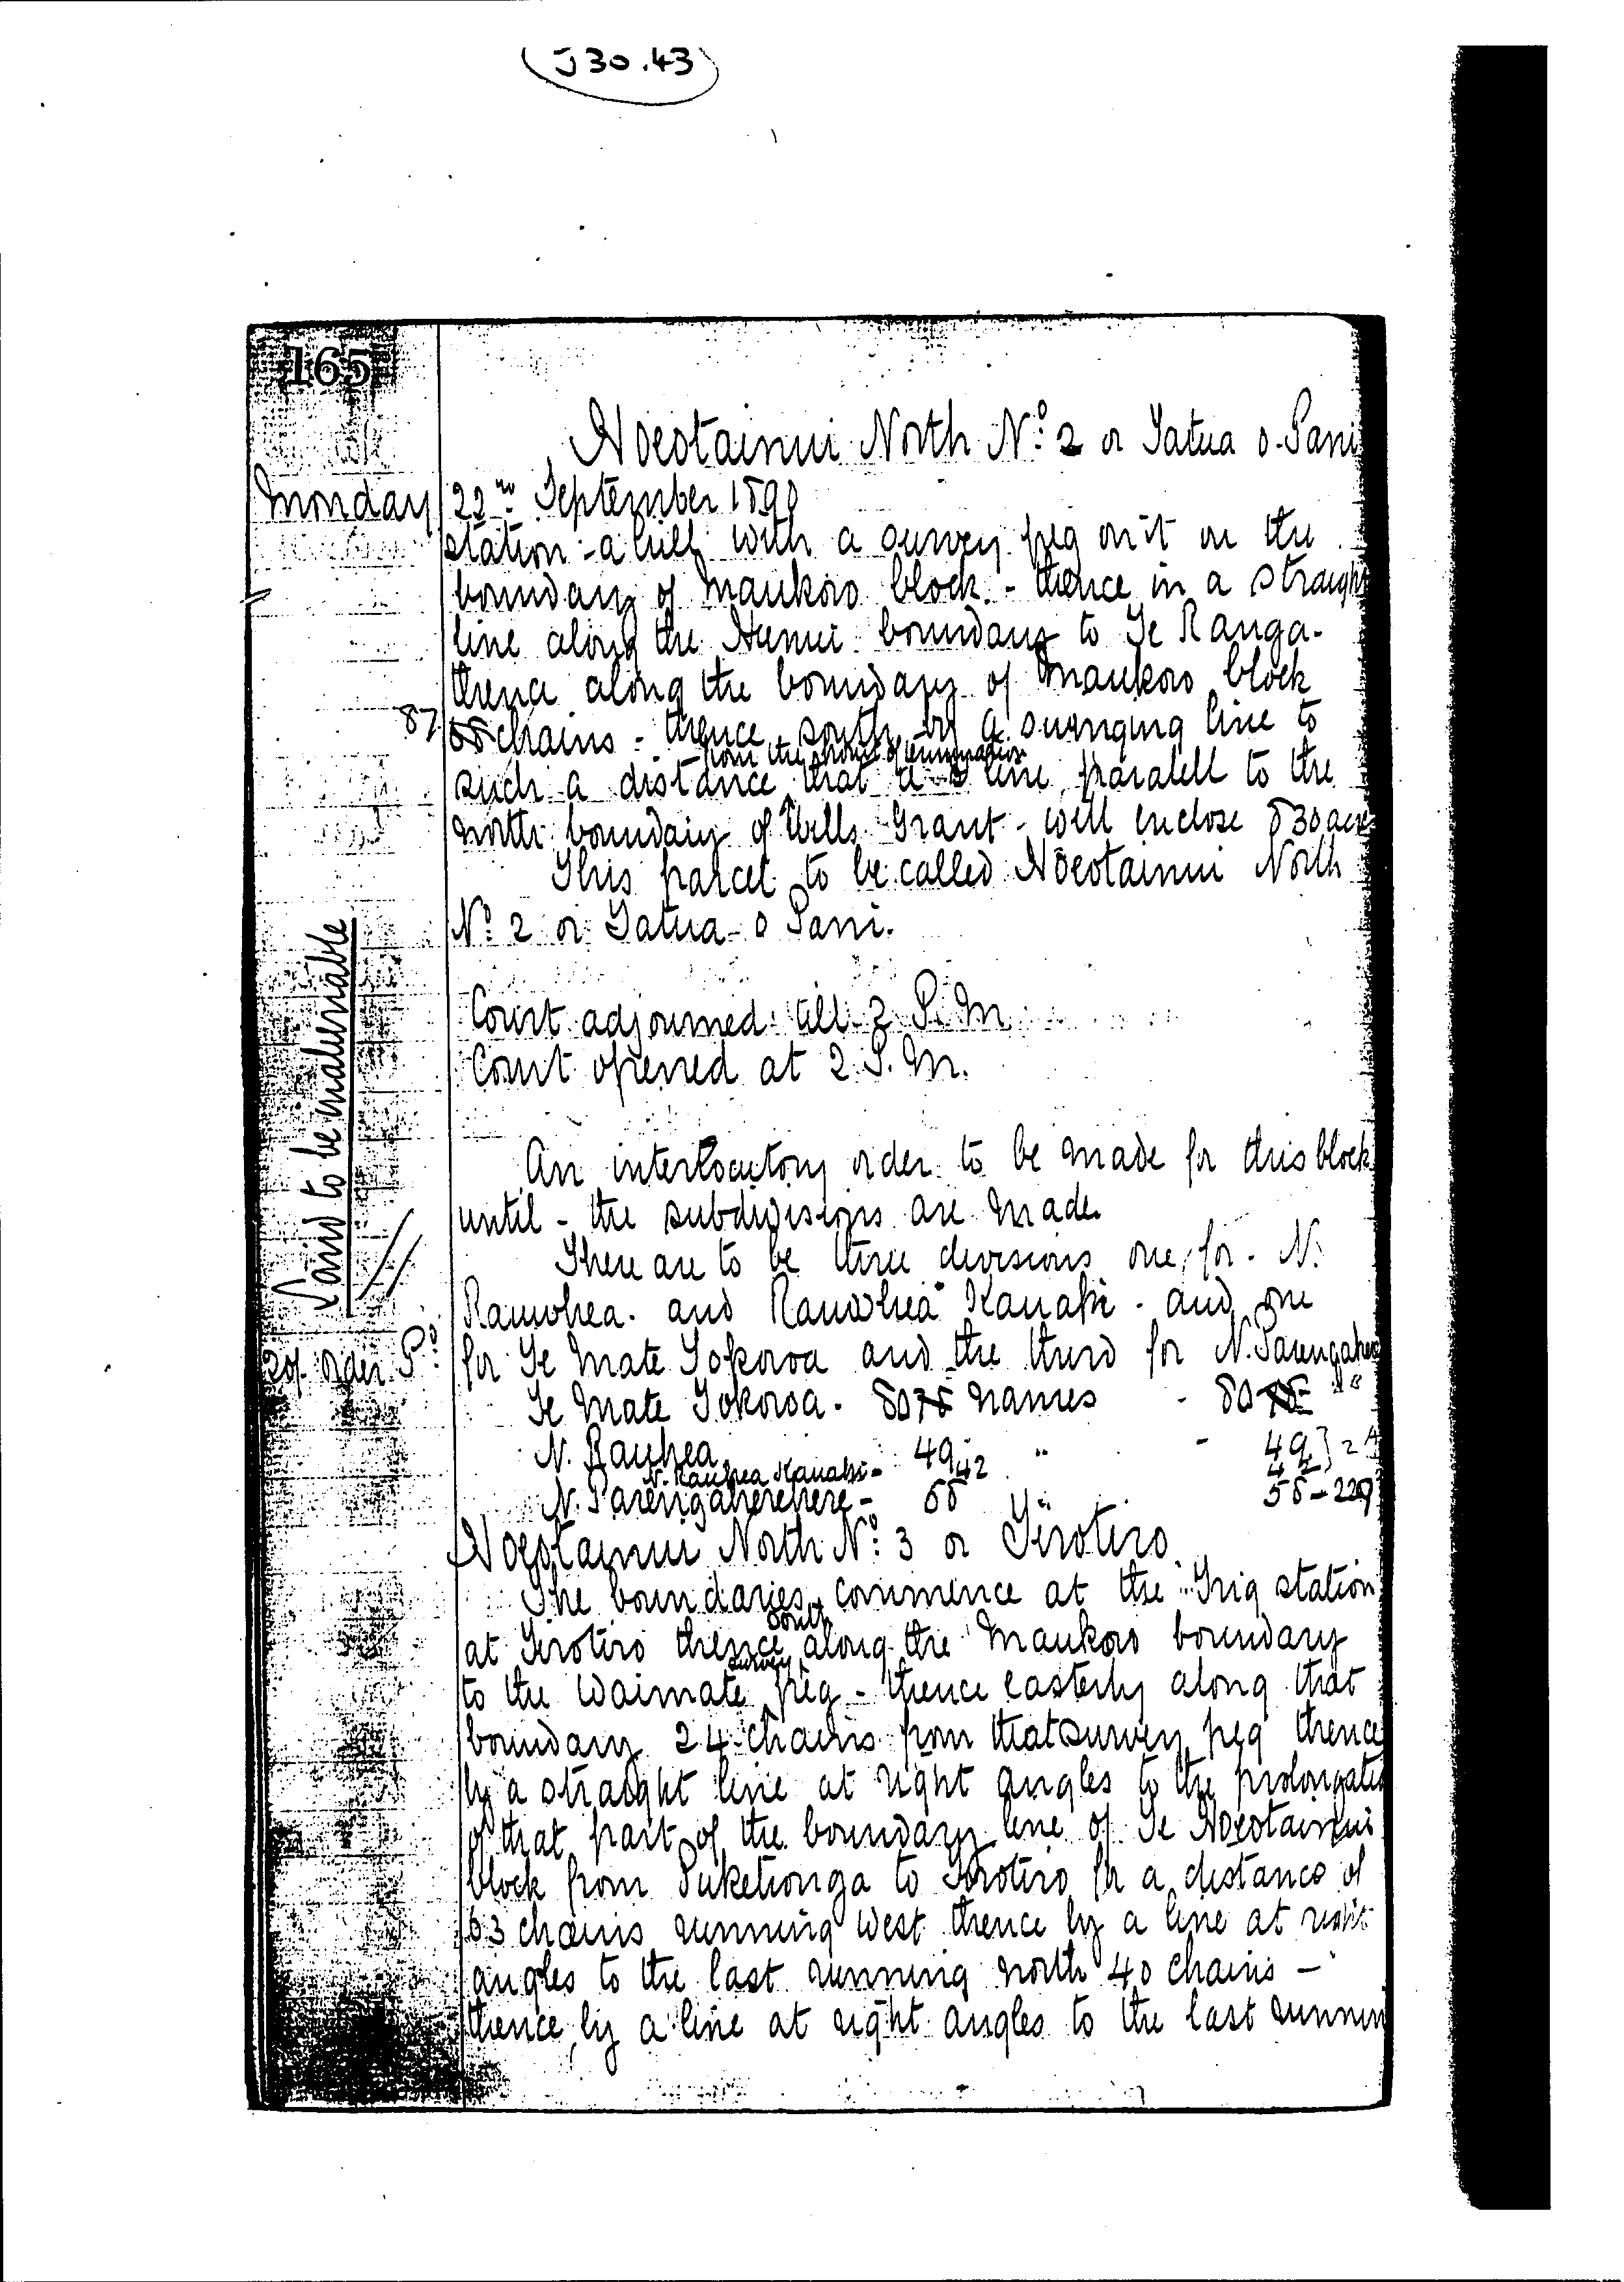 J30.43
165
Hoeotainui North No: 2 or Tatua o. Pani
Monday 22nd September 1890
station - a hill with a survey peg on it on the
boundary of Maukoro block. - thence in a straight
line along the Hunui boundary to Te Ranga-
thence along the boundary of Maukoro block
87 chains - thence south by a swinging line to
from the point of termination
such a distance that a line parallel to the
north boundary of Wells Grant - will enclose 830 acres
This parcel to be called Hoeotainui North
No 2 or Tatua - o Pani.
Land to be inalienable
Court adjourned till 2 P.M
Court opened at 2 P.M.
An interlocutory order to be made for this block
until - the subdivisions are made
There are to be three divisions one for - N.
Rauwhea. and Rauwhea Kanahi - and one
order P.
for Te Mate Tokoroa and the third for N. Parengaher
Te Mate Tokoroa. 80 names - 80 "
N. Rauhea 49 " - 49
N. Rauhea Kanahi - 42 42
N. Parengaherehere - 58 " 58 - 229
Hoeotainui North No: 3 or Tirotiro
The boundaries commence at the Trig station
south
at Tirotiro thence along the Maukoro boundary
survey
to the Waimate peg - thence easterly along that
boundary 24 chains from that survey peg thence
by a straight line at right angles to the prolongation
of that part of the boundary line of Te Hoeotainui
block from Puketionga to Tirotiro for a distance of
63 chains running west thence by a line at right
angles to the last running north 40 chains -
thence by a line at right angles to the last runnin